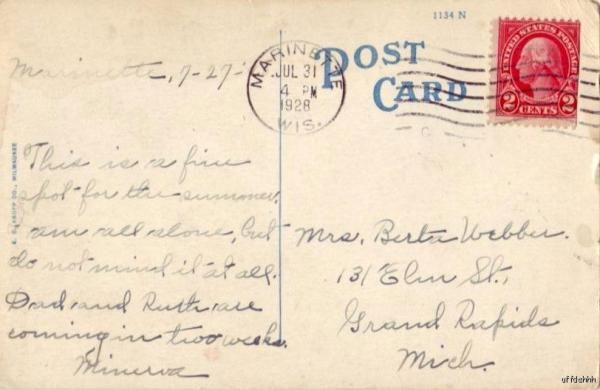 1134 N
POST
CARD
MARINETTE
JUL 31
4 PM
1928
WIS.
UNITED STATES POSTAGE
2 CENTS 2
Marinette, 7-27-
This is a fine
spot for the summer.
am all alone, but
do not mind it at all.
Dad and Ruth are
coming in two weeks.
Minerva
Mrs. Berta Webber.
131 Elm St,
Grand Rapids
Mich.
CO., MILWAUKEE
uffdahhh